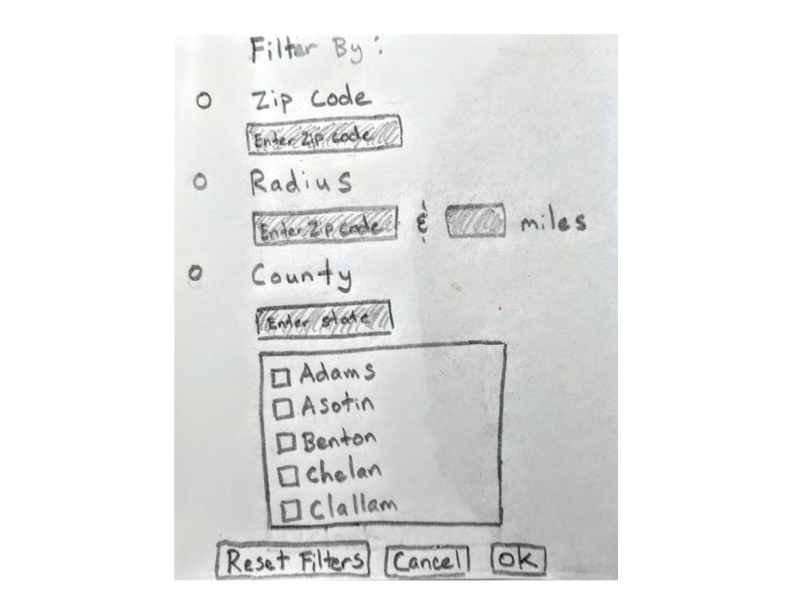 Filter By:
Zip Code
Enter Zip Code
Radius
Enter Zip Code & miles
County
Enter state
Adams
Asotin
Benton
Chelan
Clallam
Reset Filters Cancel OK